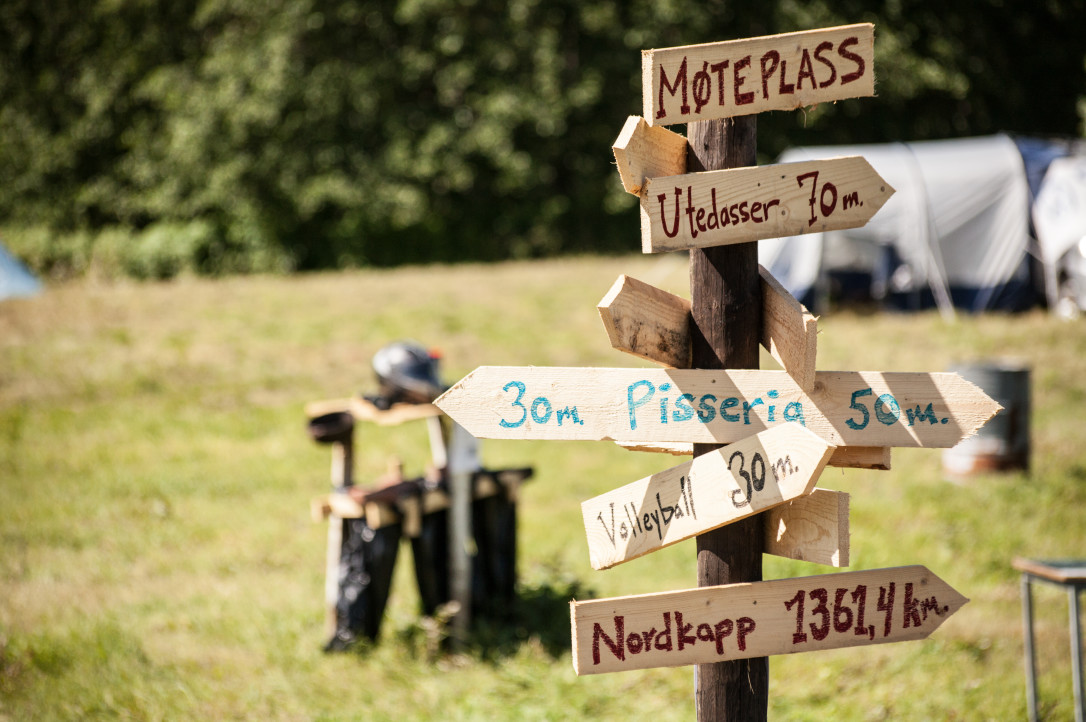 MØTEPLASS
Utedasser 70m.
30m. Pisseria 50m.
Volleyball 30m.
Nordkapp 1361,4km.